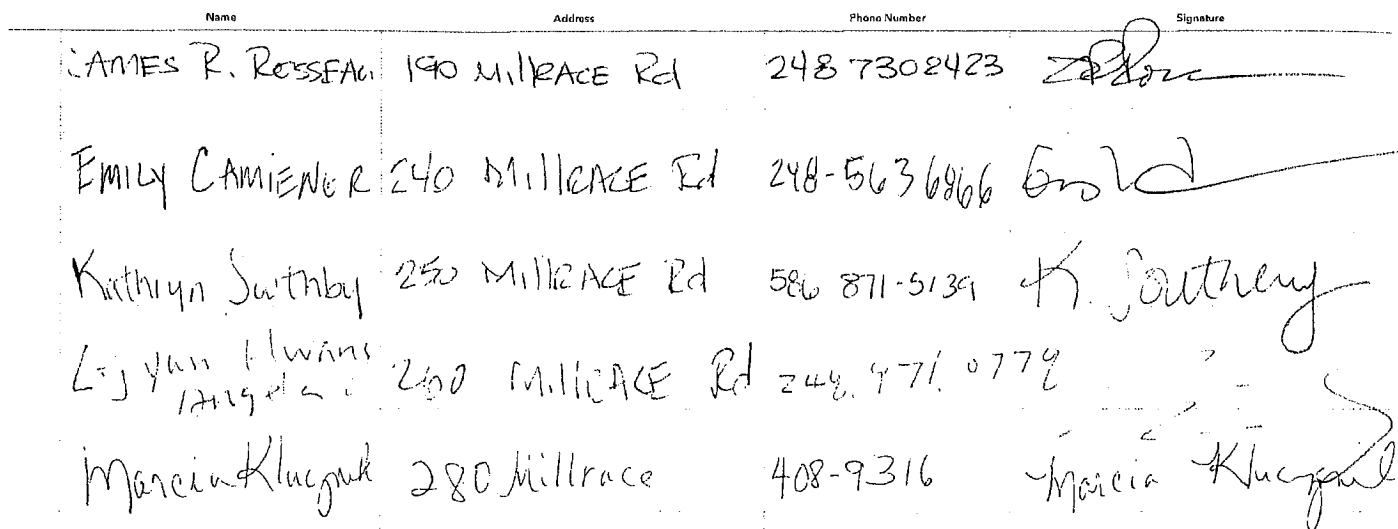 Name Address Phone Number Signature
JAMES R. ROSSEAU 190 MillRACE Rd 248 7302423
EMILY CAMIENER 240 MillRACE Rd 248-563 6866
Kathryn Southby 250 MillRACE Rd 586 871-5139 K. Southby
260 MillRACE Rd 248.971.0779
Marcia 280 Millrace 408-9316 Marcia